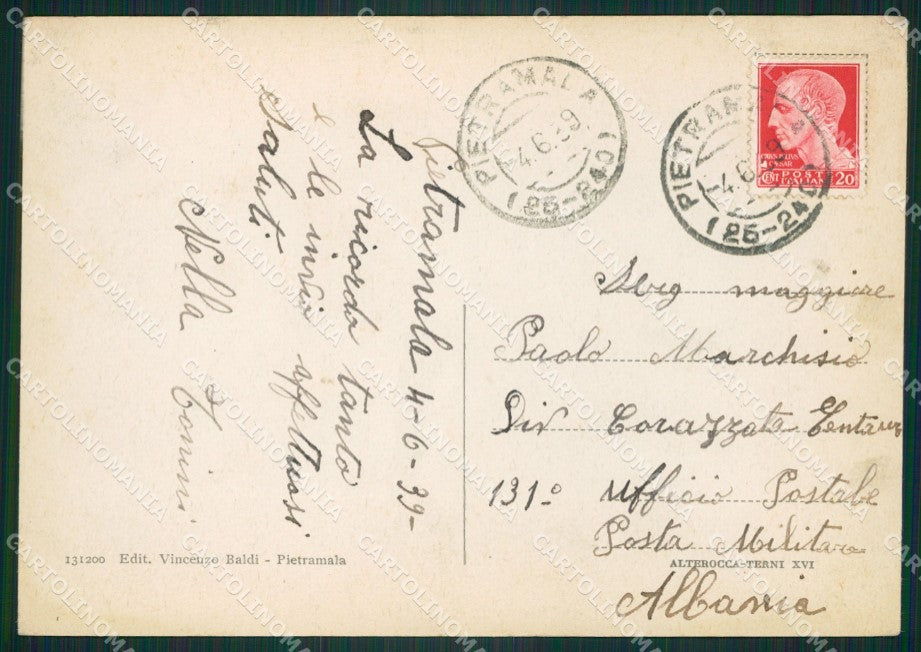 Pietramala 4-6-39-
La ricorda tanto
e le invia affettuosi
Saluti
Nella Tonini
131200 Edit. Vincenzo Baldi - Pietramala
PIETRAMALA
4.6.39
(25-240)
PIETRAMALA
4.6
(25-240)
CAIVS IVLIVS
CAESAR
CENT POSTE 20
ITALIANE
Serg maggiore
Paolo Marchisio
Div Corazzata
131º Ufficio Postale
Posta Militare
ALTEROCCA-TERNI XVI
Albania
CARTOLINOMANIA